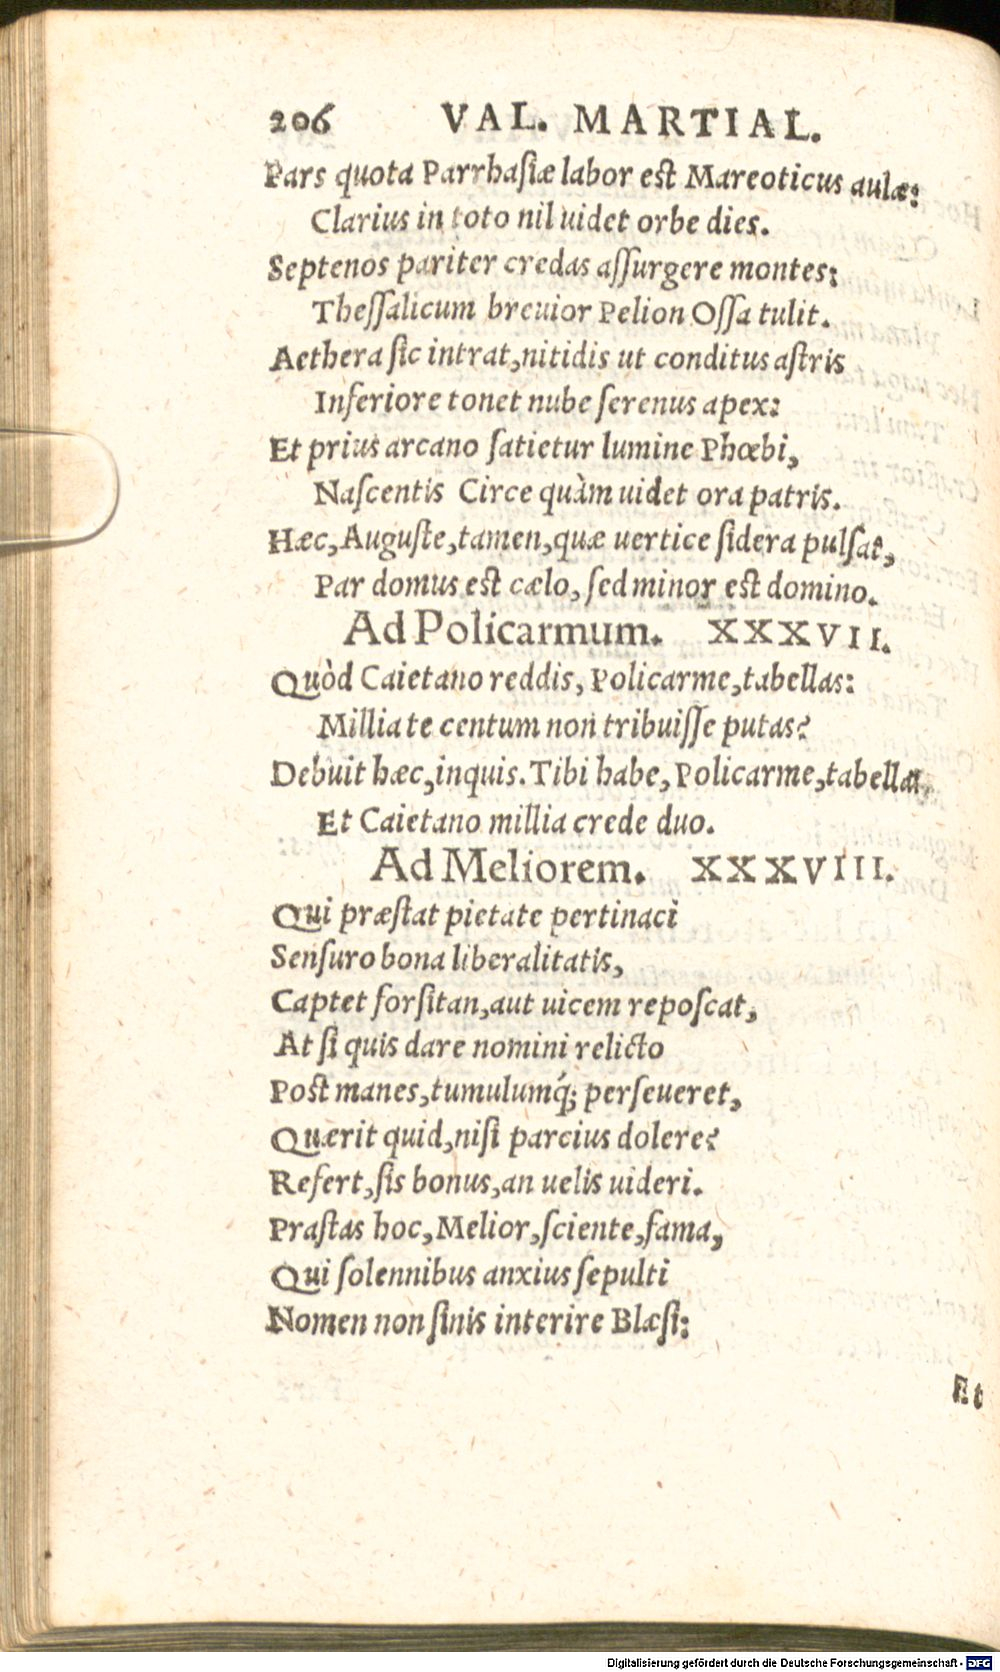 206 VAL. MARTIAL.
Pars quota Parrhasiæ labor est Mareoticus aulæ:
Clarius in toto nil uidet orbe dies.
Septenos pariter credas aſſurgere montes:
Theſſalicum breuior Pelion Oſſa tulit.
Aethera ſic intrat, nitidis ut conditus aſtris
Inferiore tonet nube ſerenus apex:
Et prius arcano ſatietur lumine Phœbi,
Naſcentis Circe quàm uidet ora patris.
Hæc, Auguſte, tamen, quæ uertice ſidera pulſat,
Par domus est cælo, ſed minor est domino.
Ad Policarmum. XXXVII.
Quòd Caietano reddis, Policarme, tabellas:
Millia te centum non tribuiſſe putas?
Debuit hæc, inquis. Tibi habe, Policarme, tabellas,
Et Caietano millia crede duo.
Ad Meliorem. XXXVIII.
Qui præſtat pietate pertinaci
Senſuro bona liberalitatis,
Captet forſitan, aut uicem repoſcat,
At ſi quis dare nomini relicto
Post manes, tumulumq́; perſeueret,
Quærit quid, niſi parcius dolere?
Refert, ſis bonus, an uelis uideri.
Præſtas hoc, Melior, ſciente, fama,
Qui ſolennibus anxius ſepulti
Nomen non ſinis interire Blæſi:
Et
Digitalisierung gefördert durch die Deutsche Forschungsgemeinschaft - DFG